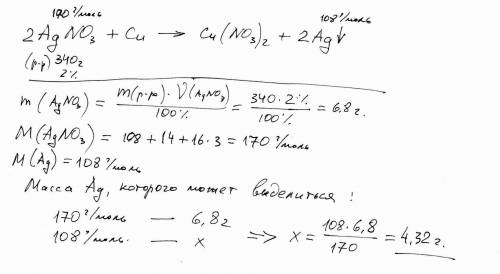 170 г/моль 108 г/моль
2AgNO₃ + Cu → Cu(NO₃)₂ + 2Ag↓
(р-р) 340г
2%
m(AgNO₃) = m(р-р) · V(AgNO₃) / 100% = 340 · 2% / 100% = 6,8 г.
M(AgNO₃) = 108 + 14 + 16 · 3 = 170 г/моль
M(Ag) = 108 г/моль
Масса Ag, которого может выделиться:
170 г/моль — 6,8 г
108 г/моль. — x => x = 108 · 6,8 / 170 = 4,32 г.